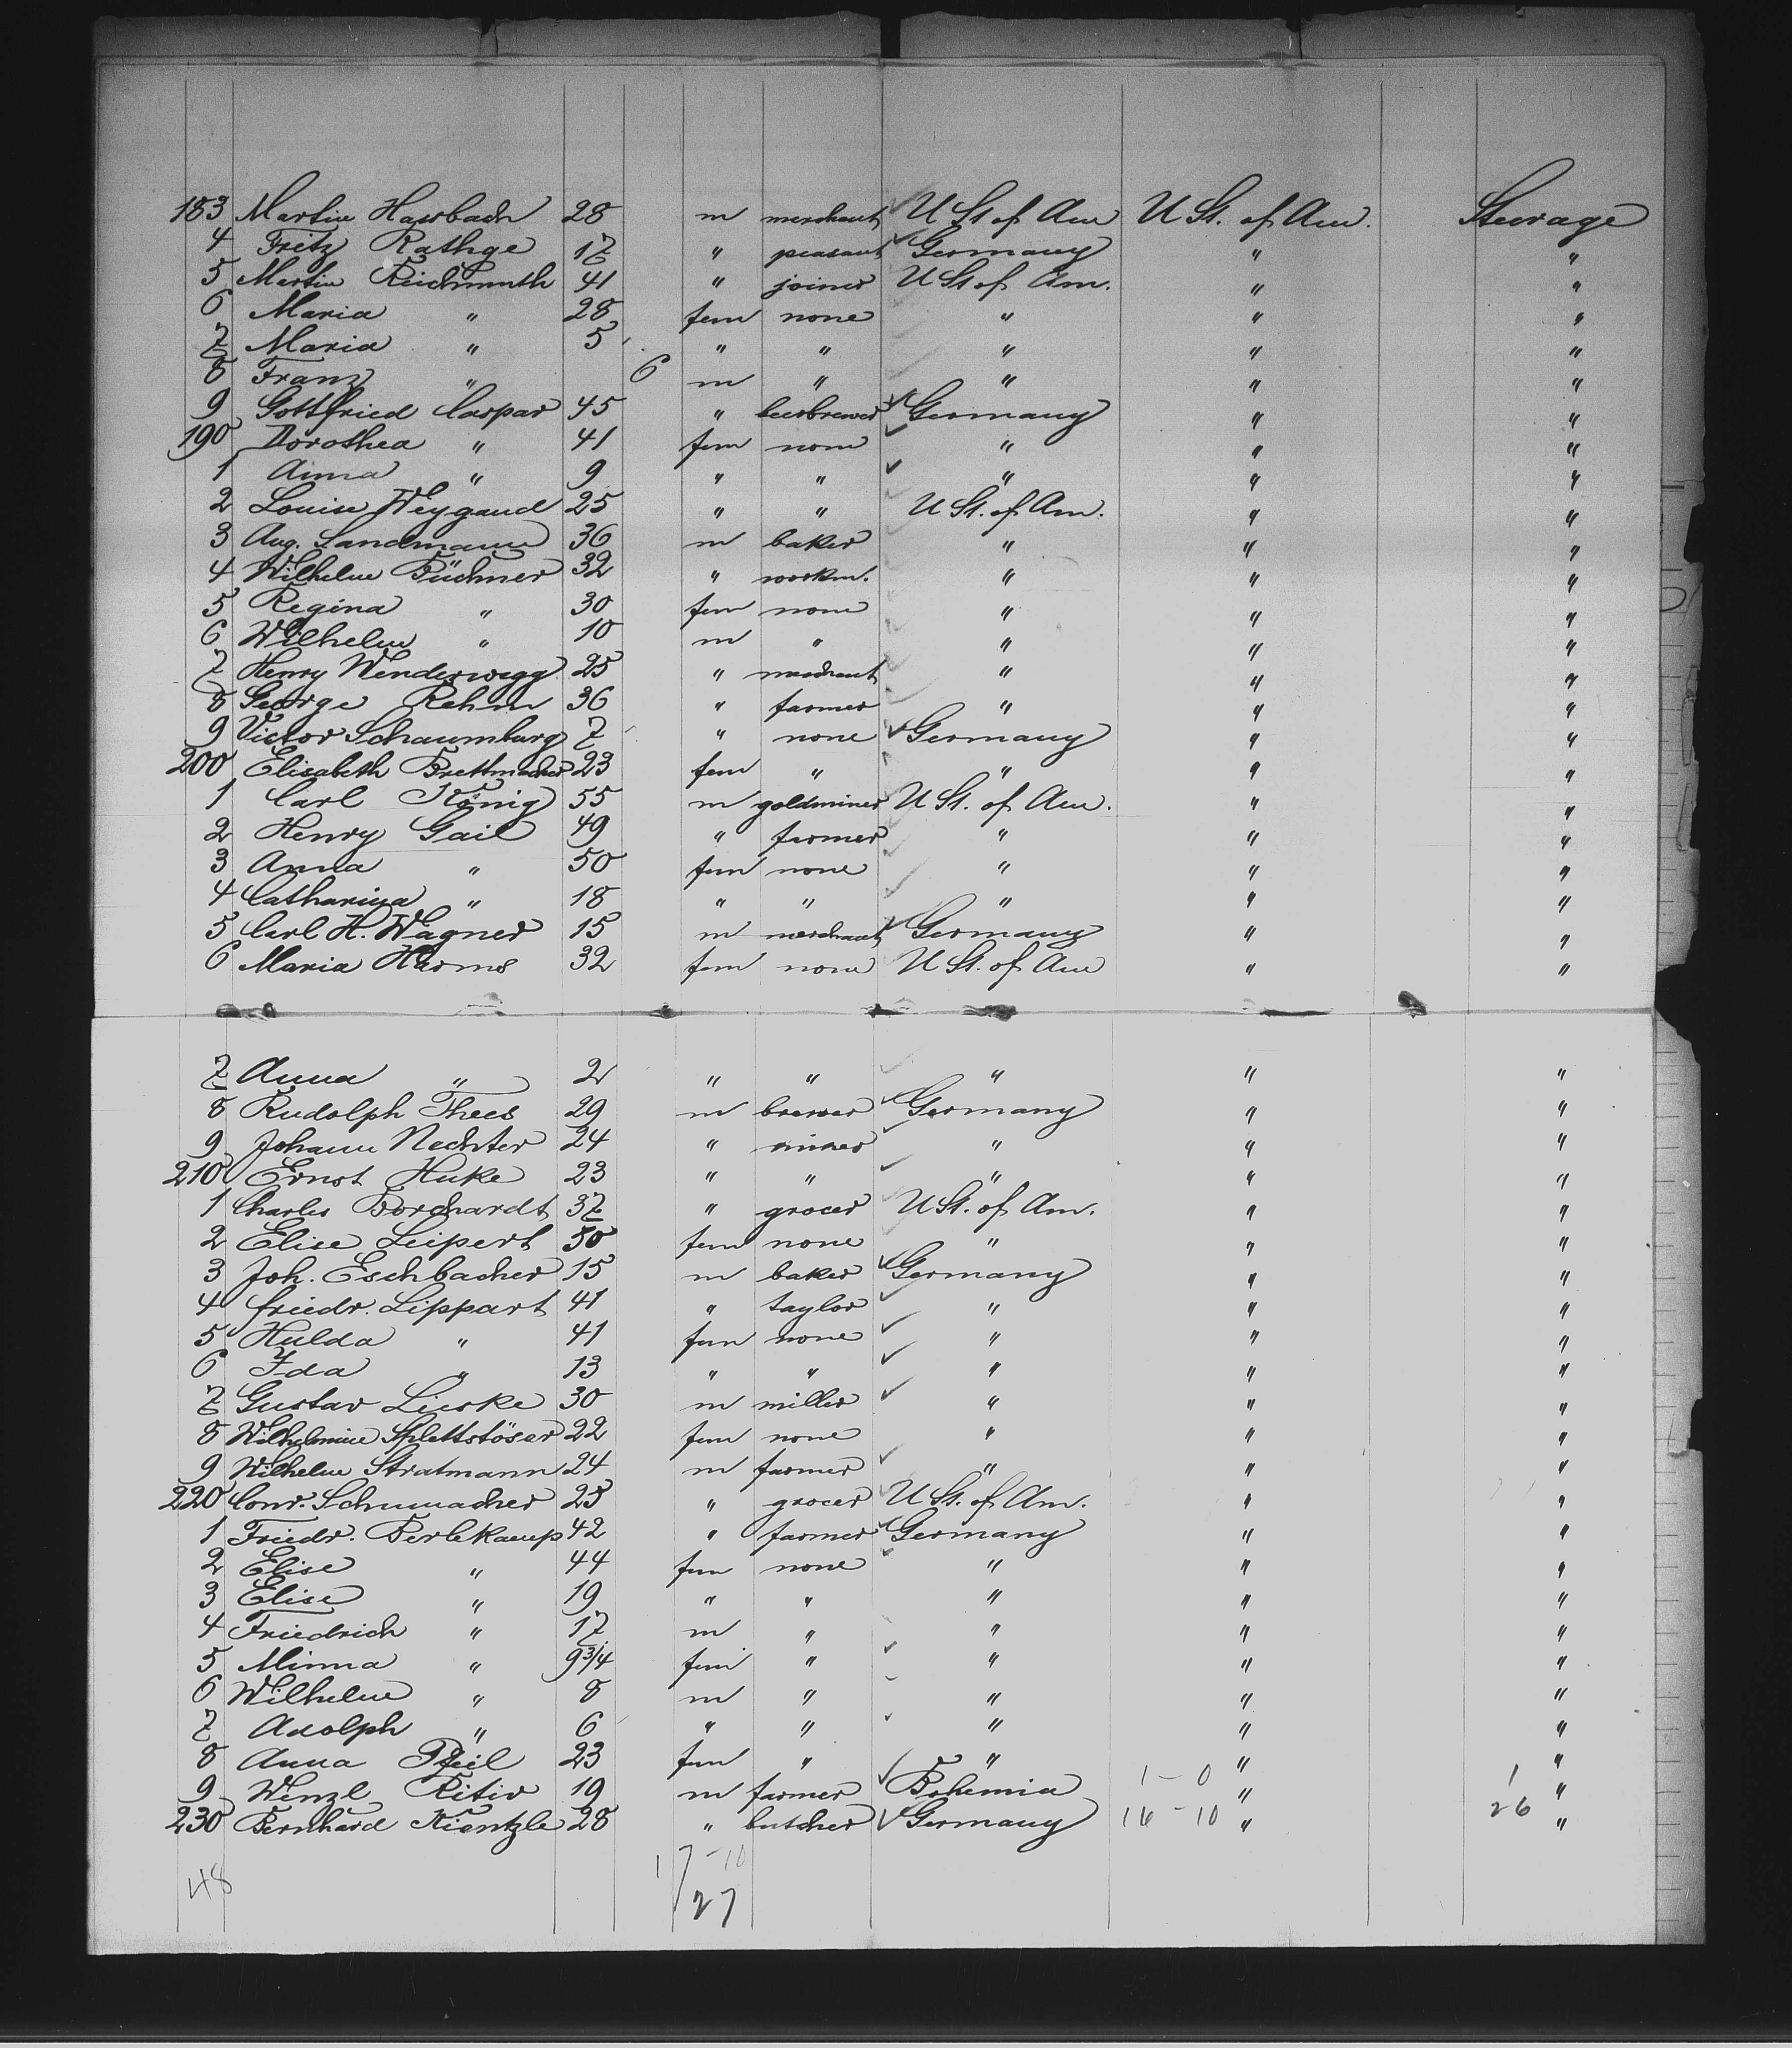 183 Martin Hassbach 28 m merchant U St of Am U St. of Am. Steerage
4 Fritz Rathge 17 " peasant Germany " "
5 Martin Reichmuth 41 " joiner U St of Am. " "
6 Maria " 28 fem none " " "
7 Maria " 5 " " " " "
8 Franz " 6 m " " " "
9 Gottfried Caspar 45 " beerbrewer Germany " "
190 Dorothea " 41 fem none " " "
1 Anna " 9 " " " " "
2 Louise Weygand 25 " " U St. of Am. " "
3 Aug. Landmann 36 m baker " " "
4 Wilhelm Büchner 32 " workm. " " "
5 Regina " 30 fem none " " "
6 Wilhelm " 10 m " " " "
7 Henry Wenderwegg 25 " merchant " " "
8 George Rehm 36 " farmer " " "
9 Victor Schaumburg 7 " none Germany " "
200 Elisabeth Brettmacher 23 fem " " " "
1 Carl König 55 m goldminer U St. of Am. " "
2 Henry Gail 49 " farmer " " "
3 Anna " 50 fem none " " "
4 Catharina " 18 " " " " "
5 Carl H. Wagner 15 m merchant Germany " "
6 Maria Harms 32 fem none U St. of Am " "
7 Anna " 2 " " " " "
8 Rudolph Thees 29 m brewer Germany " "
9 Johann Nechter 24 " miner " " "
210 Ernst Huke 23 " " " " "
1 Charles Borchardt 37 " grocer U St. of Am. " "
2 Elise Leipert 50 fem none " " "
3 Joh. Eschbacher 15 m baker Germany " "
4 Friedr. Lippart 41 " taylor " " "
5 Hulda " 41 fem none " " "
6 Ida " 13 " " " " "
7 Gustav Lieske 30 m miller " " "
8 Wilhelmine Splettstöser 22 fem none " " "
9 Wilhelm Stratmann 24 m farmer " " "
220 Conr. Schumacher 25 " grocer U St. of Am. " "
1 Friedr. Berlekamp 42 " farmer Germany " "
2 Elise " 44 fem none " " "
3 Elise " 19 " " " " "
4 Friedrich " 17 m " " " "
5 Minna " 9 3/4 fem " " " "
6 Wilhelm " 8 m " " " "
7 Adolph " 6 " " " " "
8 Anna Pfeil 23 fem " " " "
9 Wenzl Ritir 19 m farmer Bohemia 1 - 0 " 1 "
230 Bernhard Kientzle 28 " butcher Germany 16 - 10 " 26 "
17 - 10
48 27